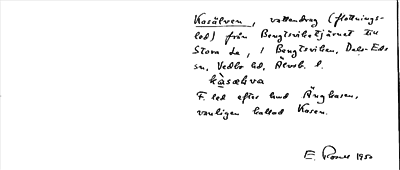 Kasälven, vattendrag (flottnings-
led) från Bengtsvikstjärnet till
Stora Le, i Bengtsviken, Dals-Eds
sn, Vedbo hd, Älvsb. l.
F. led efter hmd Ängkasen,
vanligen kallad Kasen.
E. 1950